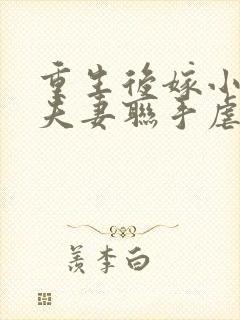 重生後嫁小
夫妻聯手虐
羨李白